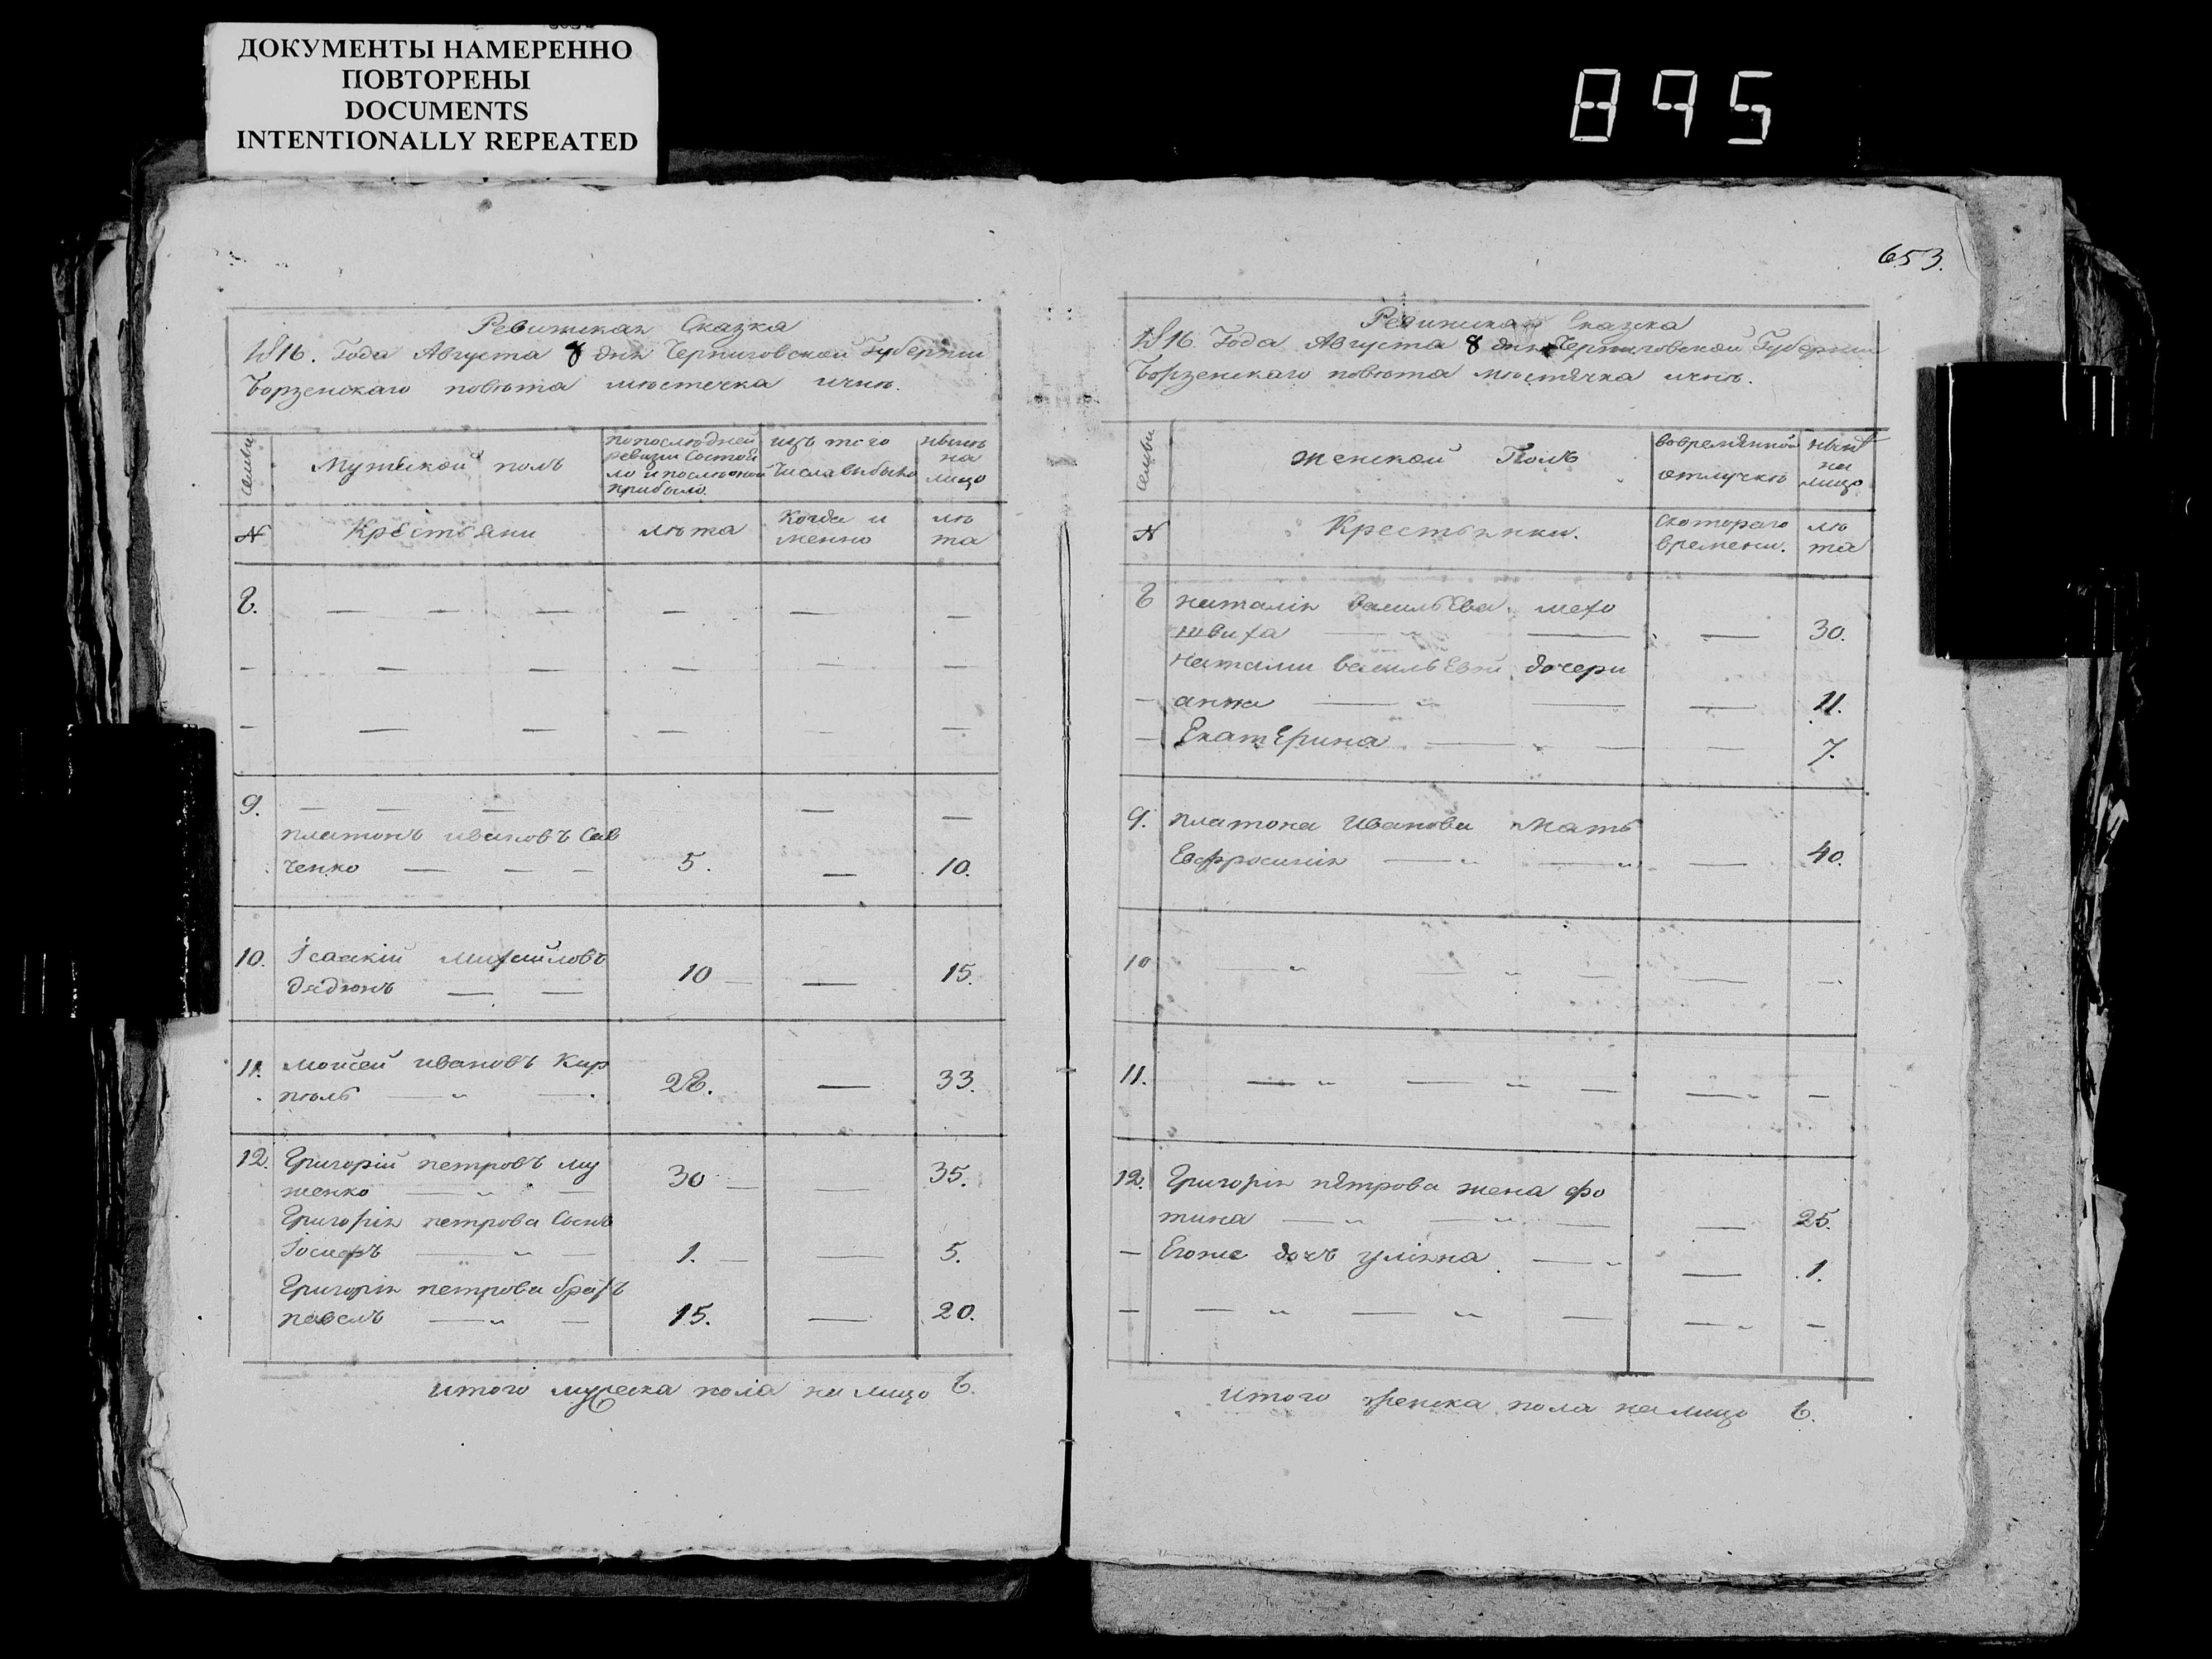 ДОКУМЕНТЫ НАМЕРЕННО
ПОВТОРЕНЫ
DOCUMENTS
INTENTIONALLY REPEATED
895
Ревижская Сказка
1816. Года Августа 8 дня Черниговской Губернии
Борзенскаго повѣта мѣстечка ичнѣ.
семьи
Мужеской полъ
попослѣдней
ревизии состоя
ло и послѣоной
прибыло.
изъ того
числа выбыло
нынѣ
на
лицо
№
Крестьяни
лѣта
Когда и
менно
лѣ
та
8.
9.
платонъ ивановъ Сав
ченко 5. 10.
10. Ісаакій михайловъ
дядюнъ 10 15.
11. моисей ивановъ Кир
пѣль 28. 33.
12. Григорій петровъ му
женко 30 35.
Григорія петрова Сынъ
Іосифъ 1. 5.
Григорія петрова братъ
павелъ 15. 20.
итого мужеска пола на лицо 6.
653.
Ревижская Сказка
1816 Года Августа 8 дня Черниговской Губернии
Борзенскаго повѣта мѣстечка ичнѣ.
семьи
женской Полъ
вовремянной
отлучкѣ
нынѣ
на
лицо
№
Крестьянки.
скотораго
времени.
лѣ
та
8 наталія васильева
30.
наталии васильевой дочери
анна 11.
Екатерина 7.
9. платона иванова мать
Евфросинія 40.
10
11.
12. Григорія петрова жена фо
тина 25.
Егоже дочъ уліяна 1.
итого женска пола налицо 6.